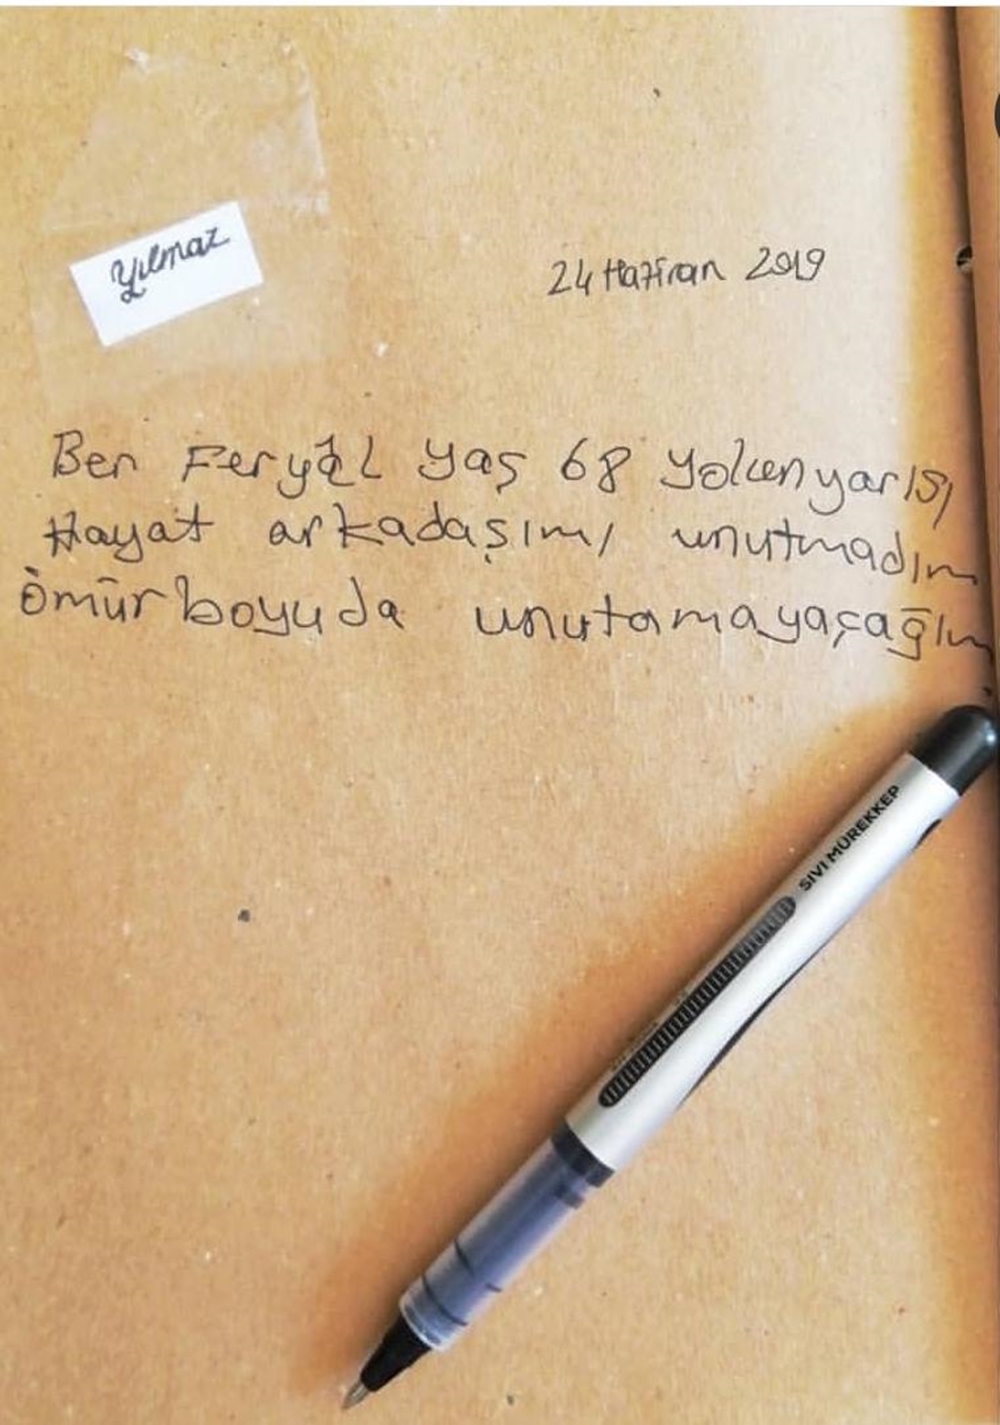 Yılmaz
24 Haziran 2019
Ben Feryâl yaş 68 yolun yarısı
Hayat arkadaşımı unutmadım
Ömür boyuda unutamayaçağım
SIVI MÜREKKEP